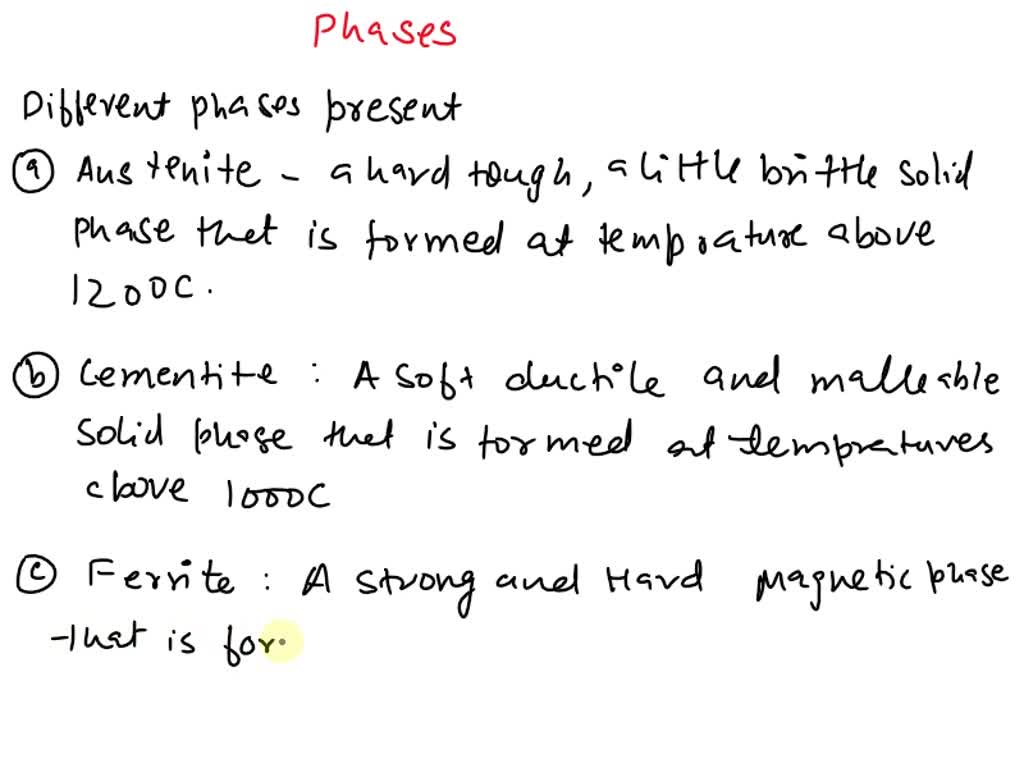 Phases
Different phases present
(a) Austenite - a hard tough, a little brittle solid
phase that is formed at temprature above
1200C.
(b) Cementite : A soft ductile and malleable
solid phase that is formed at tempratures
above 1000C
(c) Ferrite : A strong and Hard magnetic phase
that is for